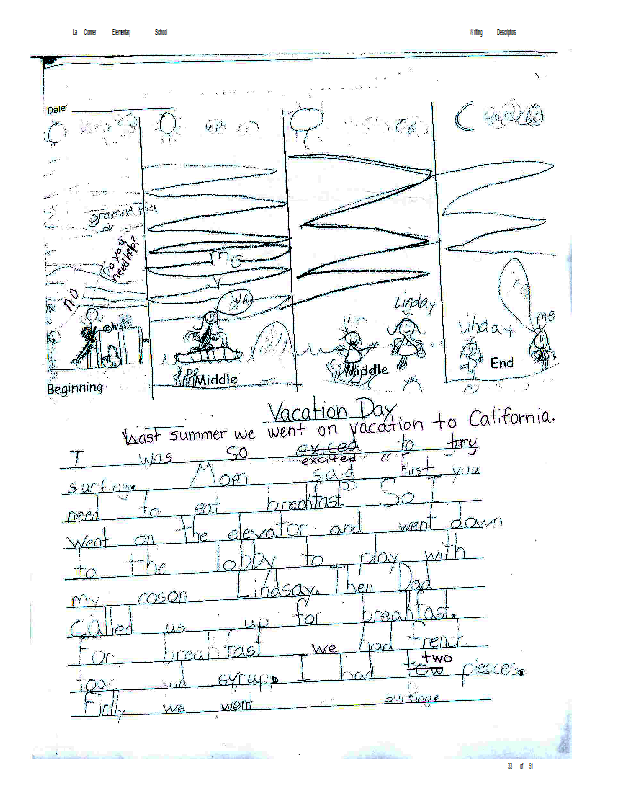 La Conner Elementary School Writing Descriptors
Date
no
Do you need help?
me
Linday
Linday
me
Beginning
Middle
Middle
End
Vacation Day
Last summer we went on vacation to California.
I was so excied to try
excited
surfinge. Mom said "First you
need to eat breakfast. So I
went on the elevator and went down
to the lobby to play with
my coson Lindsay. Then Dad
Called us up for breakfast.
For breakfast we had
two
and syrup. I had pieces.
we went surfinge
32 of 51